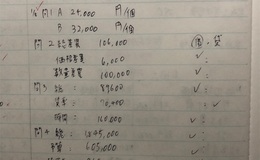 問1 A 24,000 円/個
B 32,000 円/個
問2 総差異 106,000 借・貸
価格差異 6,000 ✓
数量差異 100,000 ✓
問3 総: 89602 ✓
✓
時間: 160000 ✓
問4 総: 1045,000 ✓
予算: 605000 ✓